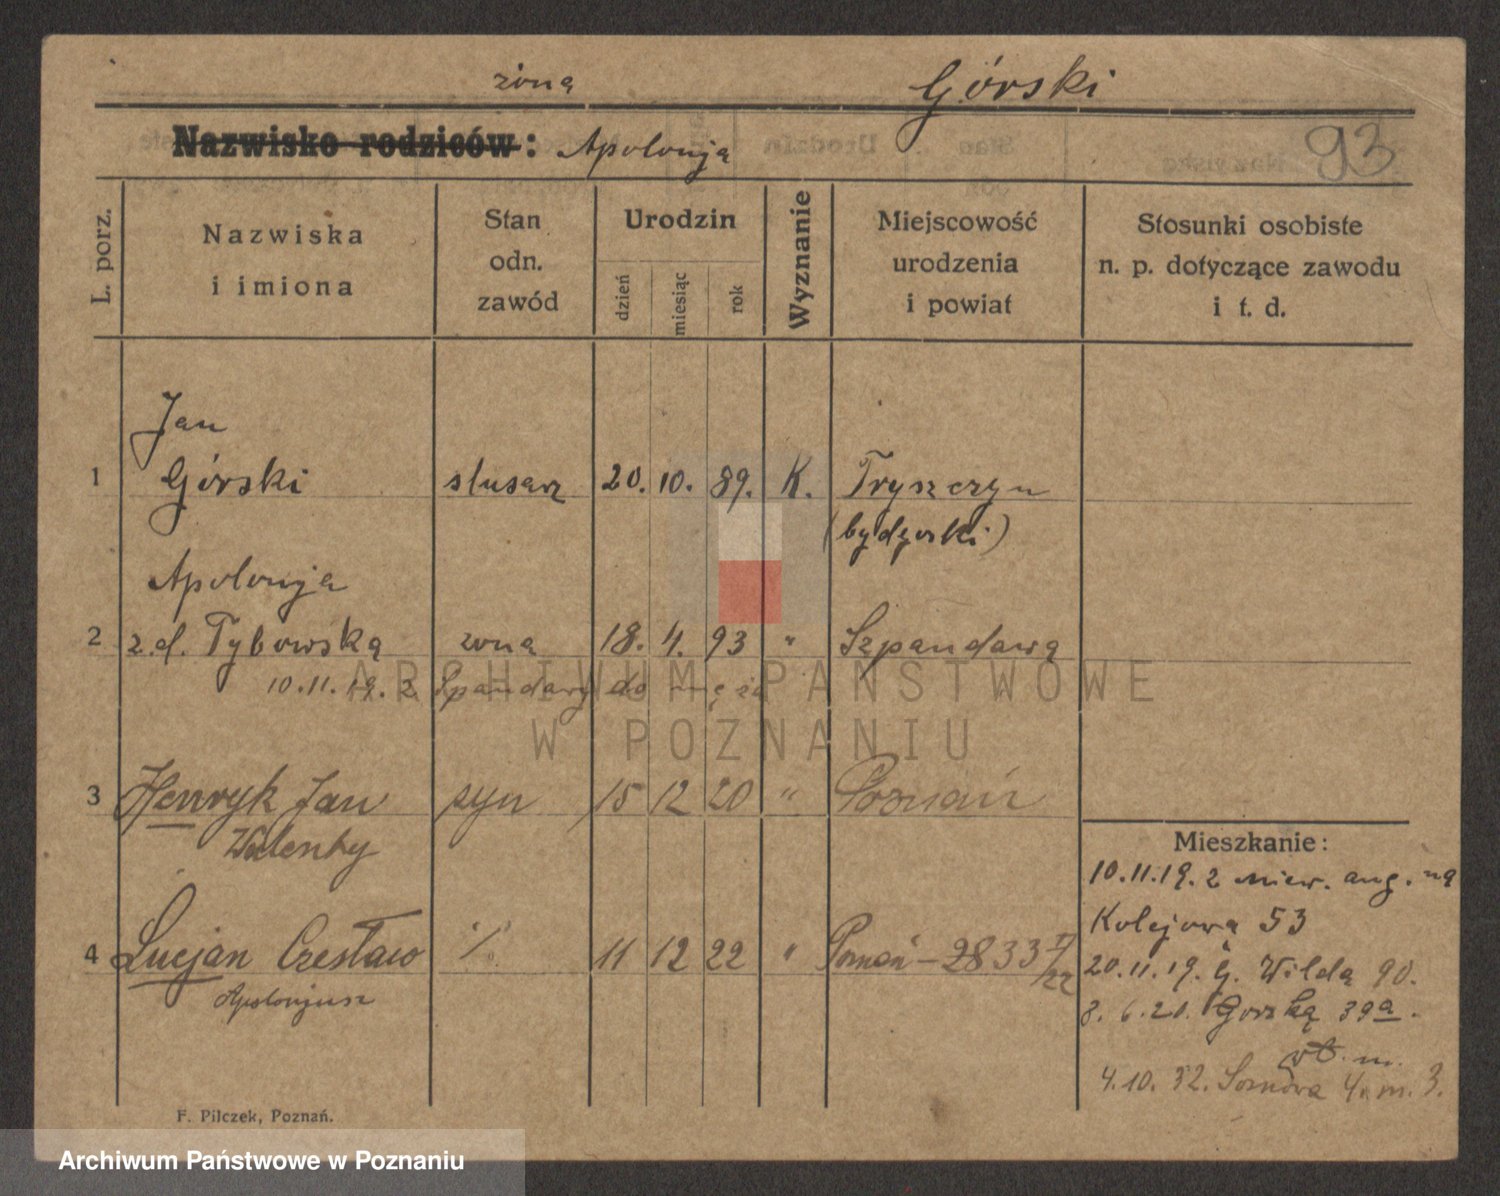 żona Górski
Nazwisko rodziców: Apolonja
93
L. porz.
Nazwiska
i imiona
Stan
odn.
zawód
Urodzin
dzień
miesiąc
rok
Wyznanie
Miejscowość
urodzenia
i powiat
Stosunki osobiste
n. p. dotyczące zawodu
i t. d.
Jan
1 Górski ślusarz 20. 10. 89. K. Tryszczyn
(bydgoski)
Apolonja
2 z.d. Tybowską żona 18. 4. 93 " Szpandawą
10.11.19. z Spandawy do męża
3 Henryk Jan syn 15 12 20 " Poznań
Walenty
4 Lucjan Czesław % 11 12 22 " Poznań - 2833 II/22
Apolonjusz
Mieszkanie:
10.11.19. z niew. ang. na
Kolejową 53
20.11.19. G. Wilda 90.
8.6.21. 39a.
m.
4.10.32. 4. m. 3.
F. Pilczek, Poznań.
ARCHIWUM PAŃSTWOWE
W POZNANIU
Archiwum Państwowe w Poznaniu